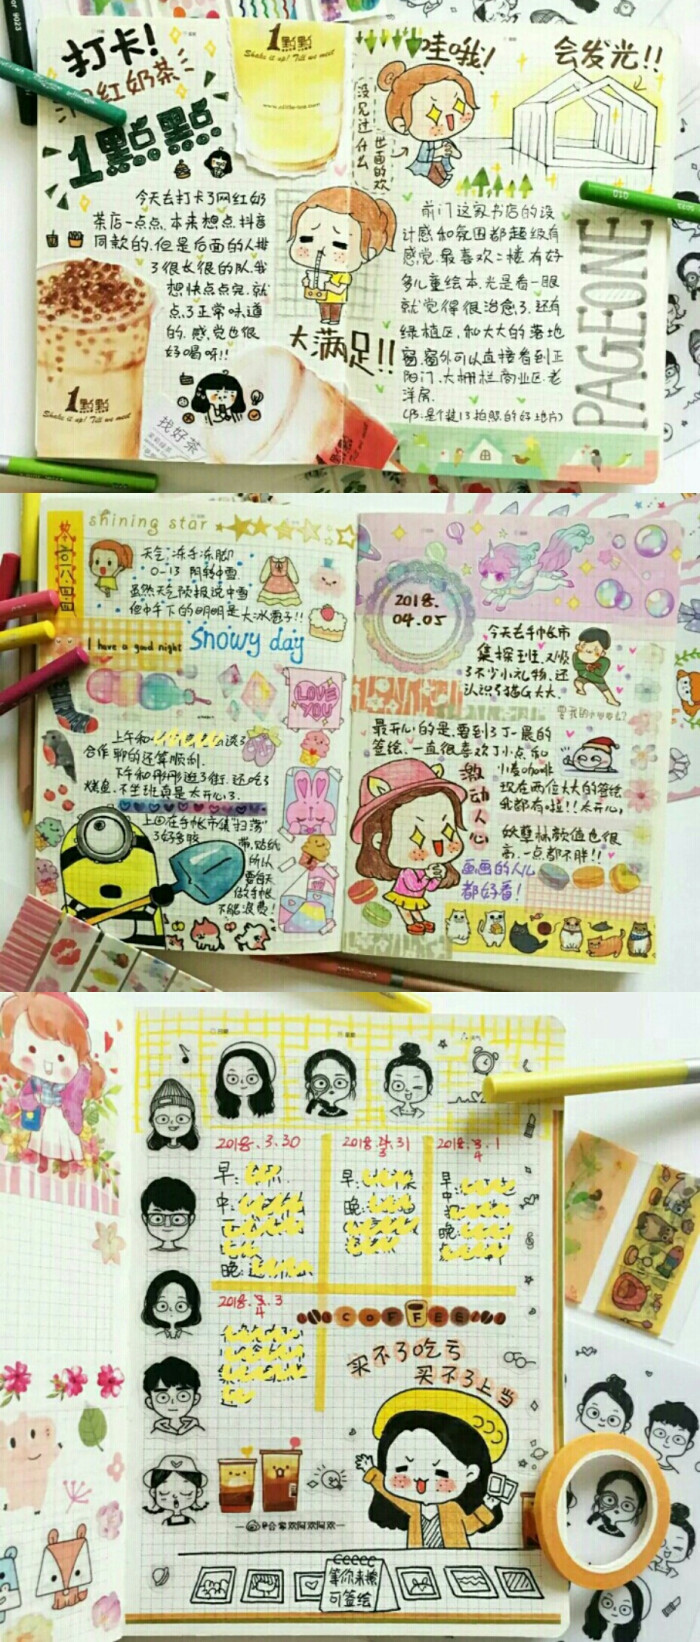 打卡!
网红奶茶
1點點
今天去打卡了网红奶
茶店一点点,本来想点抖音
同款的,但是后面的人排
了很长很的队,我
想快点点完,就
点了正常味道
的,感觉也很
好喝呀!!
1點點
Shake it up! Tell me most
1點點
Shake it up! Tell me most
大满足!!
找好茶
哇哦!
没见过什么
世面的欢
会发光!!
前门这家书店的设
计感和氛围都超级有
感觉.最喜欢二楼有好
多儿童绘本,光是看一眼
就觉得很治愈了.还有
绿植区,和大大的落地
窗,窗外可以直接看到正
阳门、大栅栏商业区、老
洋房.
(PS.是个装13拍照的好地方)
PAGEONE
shining star
天气:冻手冻脚
0-13 阴转中雪
虽然天气预报说中雪
但中午下的明明是大冰雹子!!
I have a good night
Snowy day
LOVE YOU
上午和
谈了
合作,聊的还算顺利.
下午和彤彤逛了街,还吃了
烤鱼.不坐班真是太开心了.
上回在手帐市集"扫荡"
了好多胶
带,贴纸
所以
要每天
做手帐
不能浪费!
2018.
04.05
今天去手帐市
集探班,又收
了不少小礼物,还
认识了猫G太太.
最开心的是,要到了丁一晨的
签绘,一直很喜欢丁小点和
小麦咖啡
现在两位太太的签绘
我都有啦!!太开心,
激动人心
妖孽林颜值也很
高,一点都不胖!!
画画的人儿
都好看!
2018.3.30
早:
中:
晚:
2018.3.31
早:
晚:
2018.4.1
早:
中:
晚:
2018.4.3
COFFEE
买不了吃亏
买不了上当
@合家欢阿欢阿欢
等你来撩
可签绘